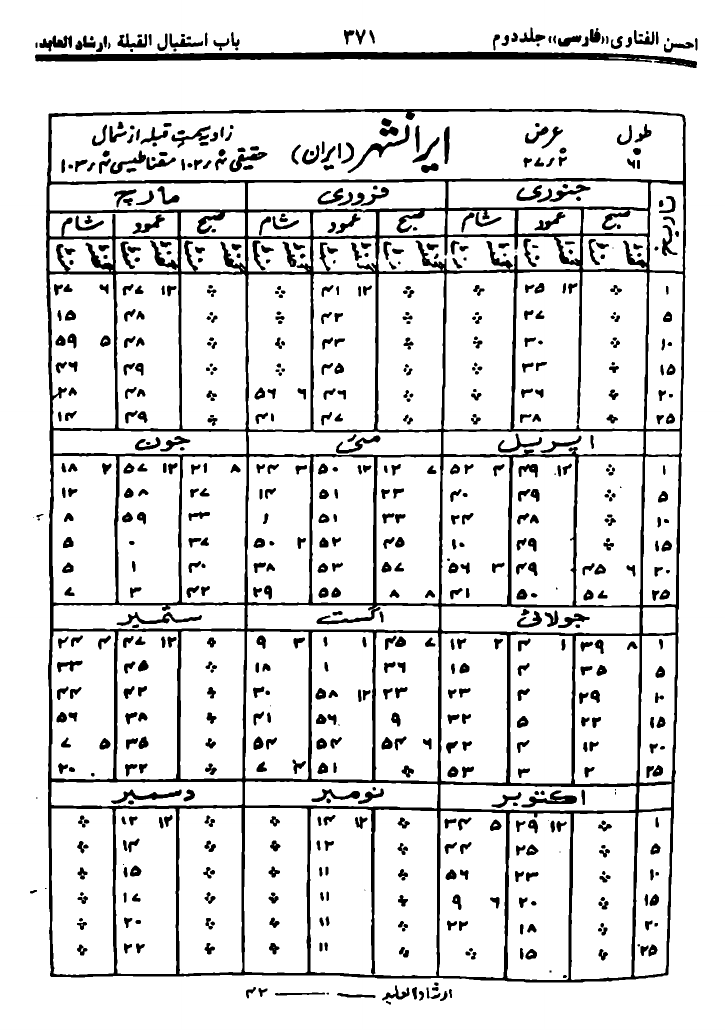 احسن الفتاوی «فارسی» جلد دوم ۳۷۱ باب استقبال القبلة «ارشاد العابد»
طول عرض ایرانشهر (ایران) زاویہ سمت قبلہ از شمال
۶۱ ۲۷٫۲ حقیقی ۱۰۲٫ مقناطیسی ۱۰۳٫
تاریخ جنوری فروری مارچ
صبح عمود شام صبح عمود شام صبح عمود شام
گھنٹہ منٹ گھنٹہ منٹ گھنٹہ منٹ گھنٹہ منٹ گھنٹہ منٹ گھنٹہ منٹ گھنٹہ منٹ گھنٹہ منٹ گھنٹہ منٹ
۱ ※ ۱۲ ۲۵ ※ ※ ۱۲ ۴۱ ※ ※ ۱۲ ۴۷ ۶ ۲۷
۵ ※ ۲۷ ※ ※ ۴۲ ※ ※ ۴۸ ۱۵
۱۰ ※ ۳۰ ※ ※ ۴۳ ※ ※ ۴۸ ۵ ۵۹
۱۵ ※ ۳۳ ※ ※ ۴۵ ※ ※ ۴۹ ۴۶
۲۰ ※ ۳۶ ※ ※ ۴۶ ۶ ۵۶ ※ ۴۸ ۲۸
۲۵ ※ ۳۸ ※ ※ ۴۷ ۴۱ ※ ۴۹ ۱۴
اپریل مئ جون
۱ ※ ۱۲ ۴۹ ۴ ۵۲ ۷ ۱۲ ۱۲ ۵۰ ۳ ۲۴ ۸ ۲۱ ۱۲ ۵۷ ۲ ۱۸
۵ ※ ۴۹ ۴۰ ۲۳ ۵۱ ۱۴ ۲۷ ۵۸ ۱۲
۱۰ ※ ۴۸ ۲۴ ۳۳ ۵۱ ۱ ۳۳ ۵۹ ۸
۱۵ ※ ۴۹ ۱۰ ۴۵ ۵۲ ۲ ۵۰ ۳۷ ۰ ۵
۲۰ ۶ ۴۵ ۴۹ ۳ ۵۶ ۵۷ ۵۳ ۳۸ ۴۰ ۱ ۵
۲۵ ۵۷ ۵۰ ۴۱ ۸ ۸ ۵۵ ۲۹ ۴۲ ۳ ۷
جولائ اگست ستمبر
۱ ۸ ۳۹ ۱ ۴ ۲ ۱۲ ۷ ۴۵ ۱ ۱ ۳ ۹ ※ ۱۲ ۴۷ ۴ ۲۴
۵ ۳۵ ۴ ۱۵ ۳۶ ۱ ۱۸ ※ ۴۵ ۳۳
۱۰ ۲۹ ۴ ۲۳ ۲۳ ۱۲ ۵۸ ۳۰ ※ ۴۲ ۴۴
۱۵ ۲۲ ۵ ۳۲ ۹ ۵۶ ۴۱ ※ ۳۸ ۵۶
۲۰ ۱۲ ۴ ۴۲ ۶ ۵۴ ۵۴ ۵۴ ※ ۳۵ ۵ ۷
۲۵ ۲ ۳ ۵۳ ※ ۵۱ ۴ ۷ ※ ۳۲ ۲۰
اکتوبر نومبر دسمبر
۱ ※ ۱۲ ۲۹ ۵ ۳۴ ※ ۱۲ ۱۴ ※ ※ ۱۲ ۱۲ ※
۵ ※ ۲۵ ۴۴ ※ ۱۲ ※ ※ ۱۴ ※
۱۰ ※ ۲۳ ۵۶ ※ ۱۱ ※ ※ ۱۵ ※
۱۵ ※ ۲۰ ۶ ۹ ※ ۱۱ ※ ※ ۱۷ ※
۲۰ ※ ۱۸ ۲۲ ※ ۱۱ ※ ※ ۲۰ ※
۲۵ ※ ۱۵ ※ ※ ۱۱ ※ ※ ۲۲ ※
ارشاد العابد ــــــ ۴۲